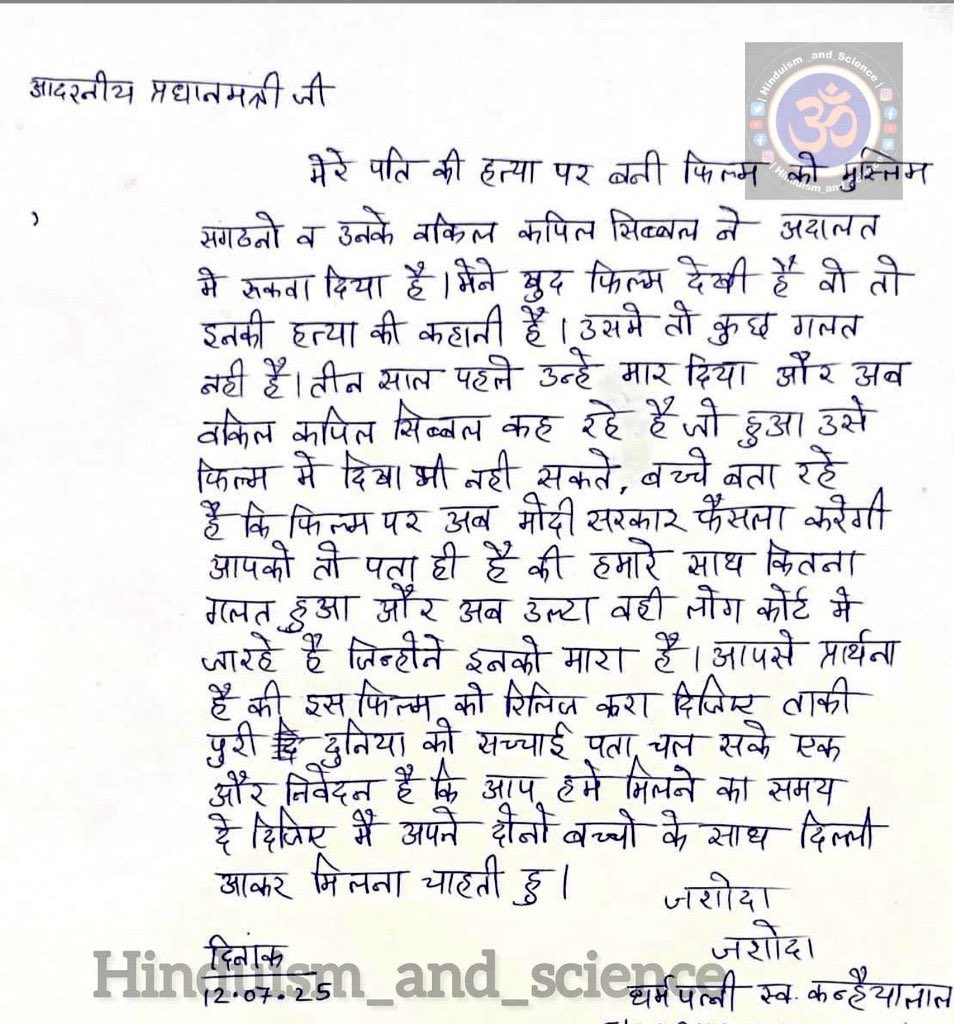 | Hinduism_and_Science |
ॐ
| Hinduism_and_Science |
आदरनीय प्रधानमत्री जी
मेरे पति की हत्या पर बनी फिल्म को मुस्लिम
सगठनो व उनके वकिल कपिल सिब्बल ने अदालत
मे रुकवा दिया है। मैने खुद फिल्म देखी है वो तो
इनकी हत्या की कहानी है। उसमे तो कुछ गलत
नही है। तीन साल पहले उन्हे मार दिया और अब
वकिल कपिल सिब्बल कह रहे है जो हुआ उसे
फिल्म मे दिखा भी नही सकते, बच्चे बता रहे
है कि फिल्म पर अब मोदी सरकार फैसला करेगी
आपको तो पता ही है की हमारे साथ कितना
गलत हुआ और अब उल्टा वही लोग कोर्ट मे
जारहे है जिन्होने इनको मारा है। आपसे प्रार्थना
है की इस फिल्म को रिलिज करा दिजिए ताकी
पुरी दुनिया को सच्चाई पता चल सके एक
और निवेदन है कि आप हमे मिलने का समय
दे दिजिए मै अपने दोनो बच्चो के साथ दिल्ली
आकर मिलना चाहती हु।
जशोदा
जशोदा
दिनांक
12.07.25
धर्मपत्नी स्व. कन्हैयालाल
Hinduism_and_science